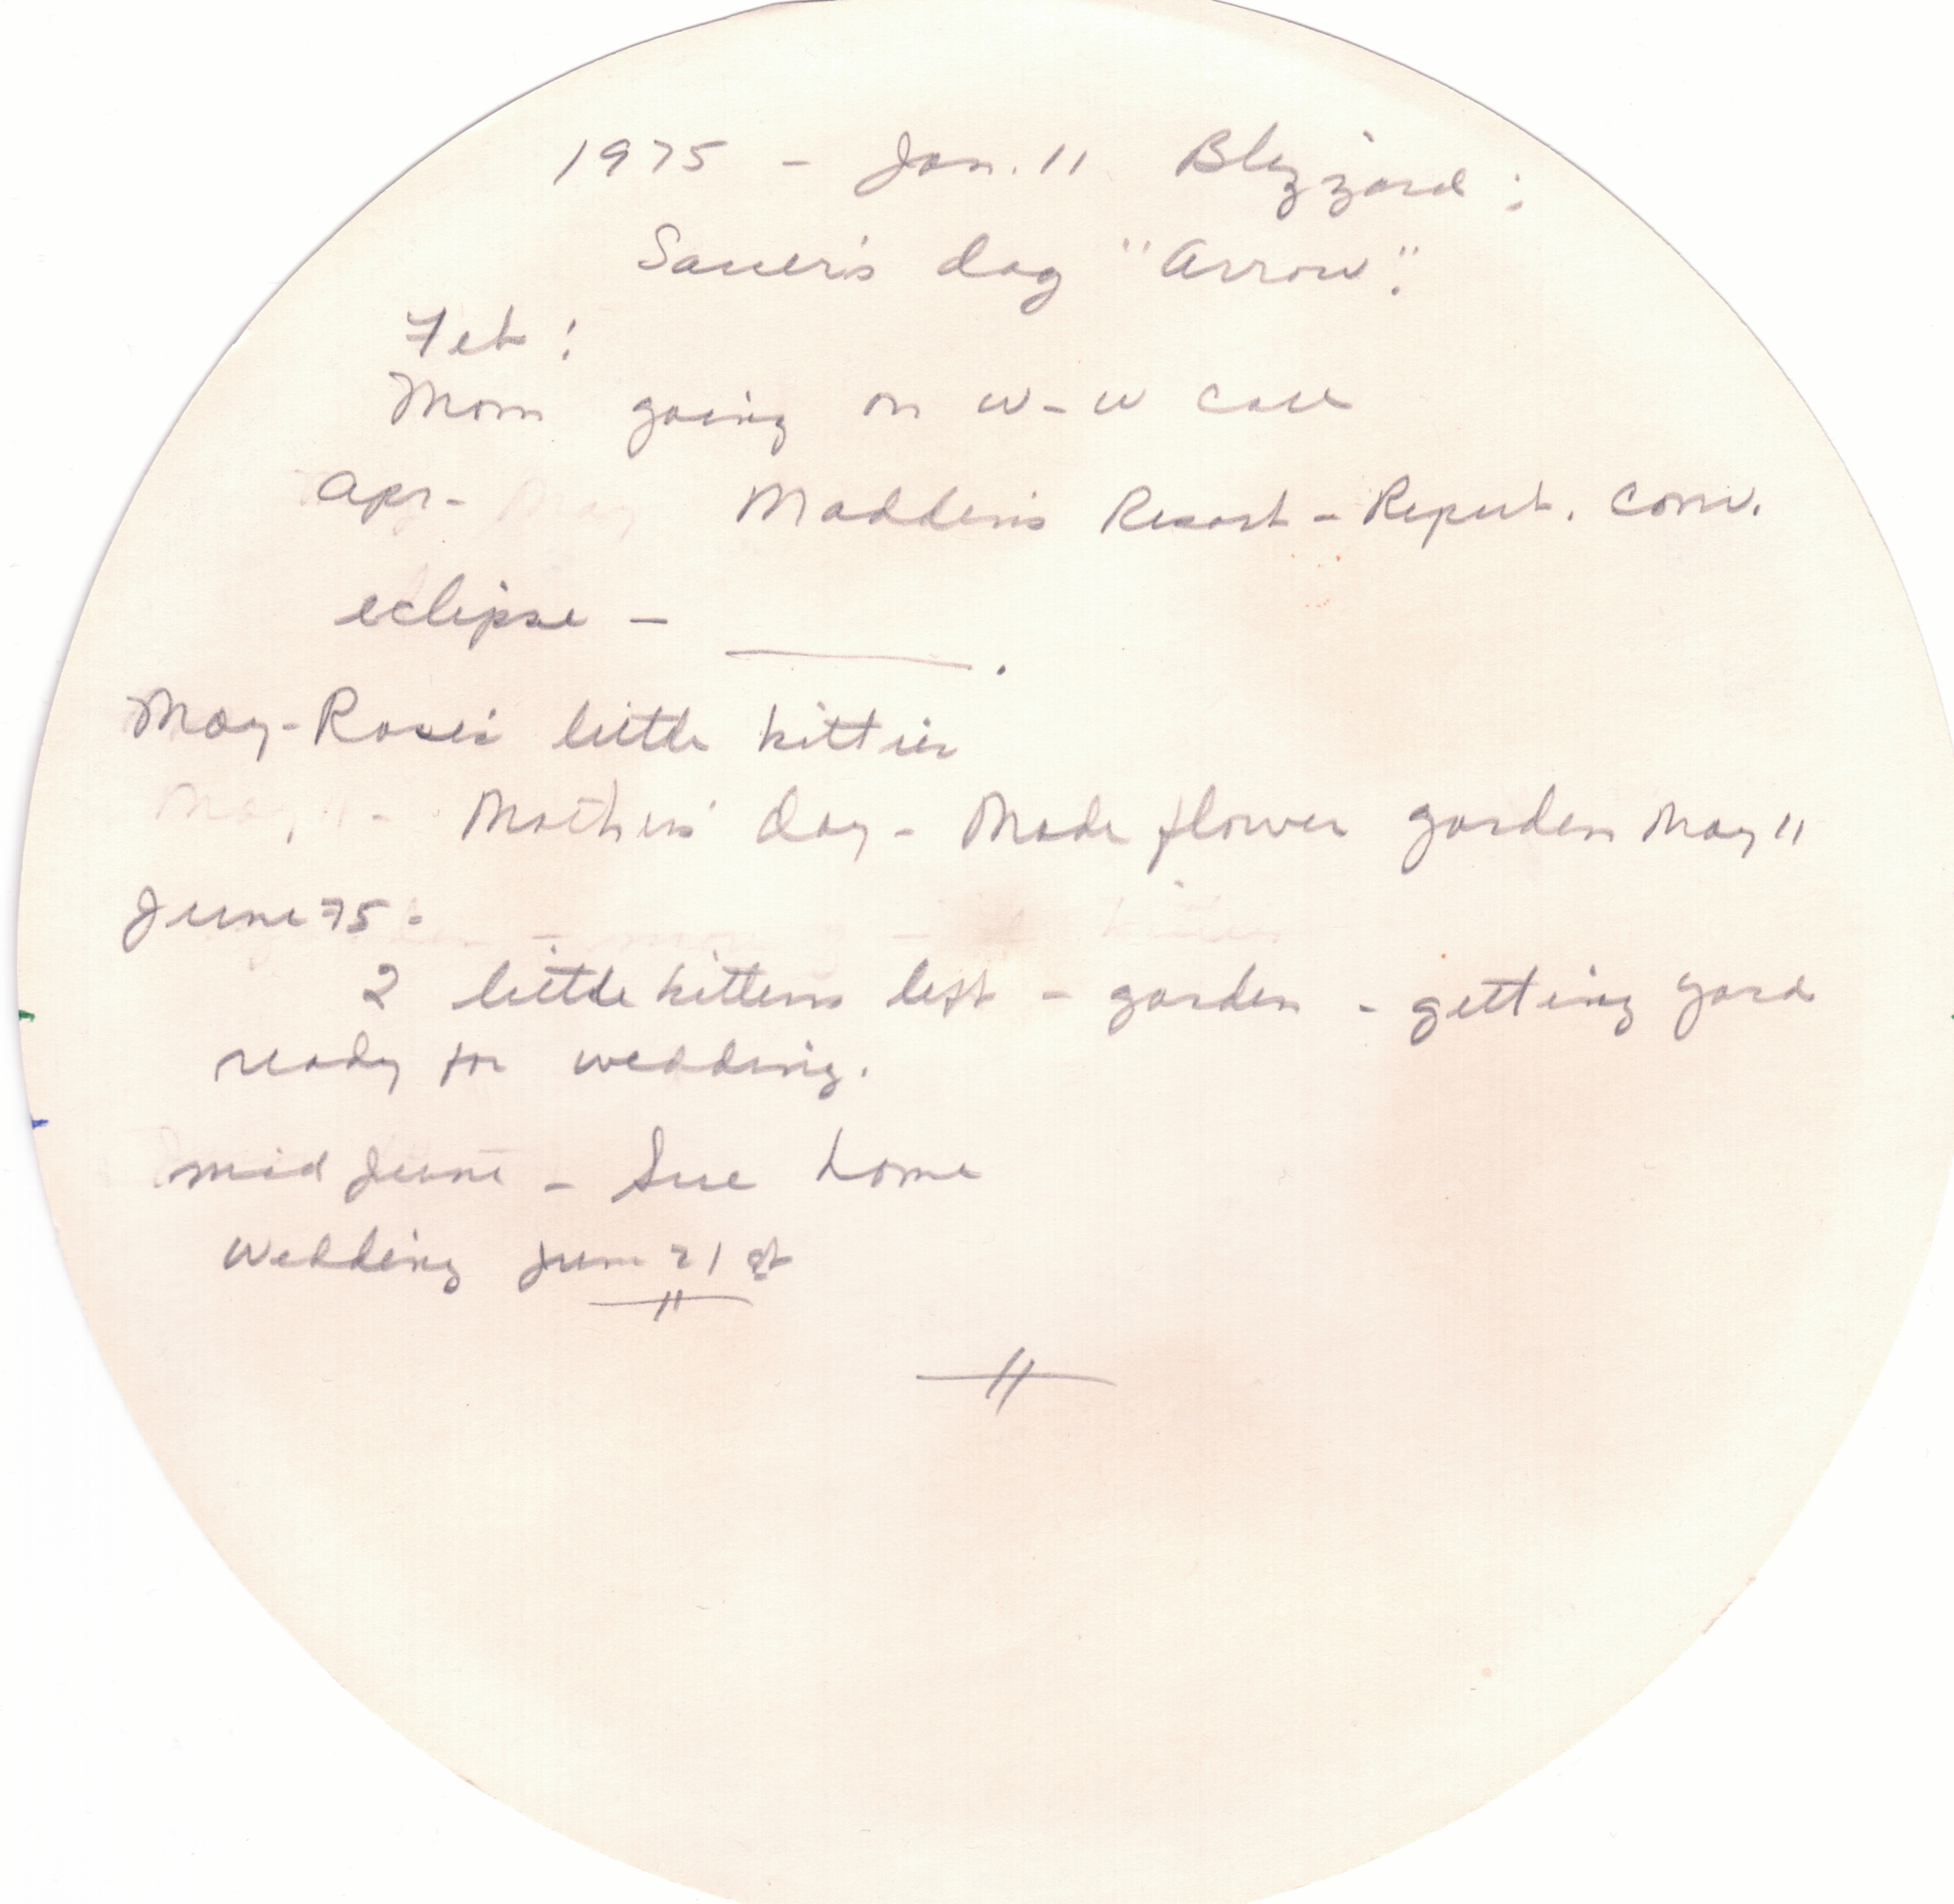 1975 - Jan. 11 Blizzard:
Sauer's dog "Arrow".
Feb:
Mom going on W-W call
Apr- May Madden's Resort - Repub. Conv.
eclipse -
May-Rose's little kitties
May 11 - Mother's day - Made flower garden May 11
June 75 -
2 little kittens left - garden - getting yard
ready for wedding.
mid June - Sue home
Wedding June 21 st